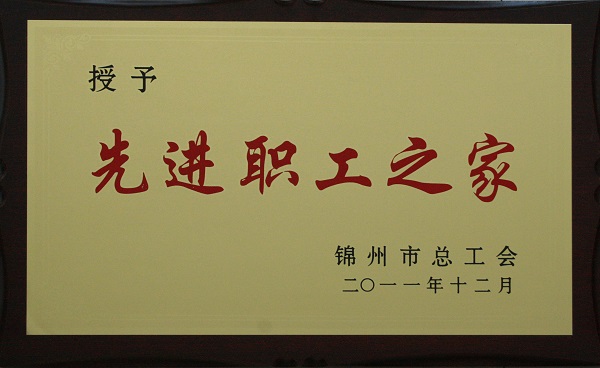 授予
先进职工之家
锦州市总工会
二〇一一年十二月